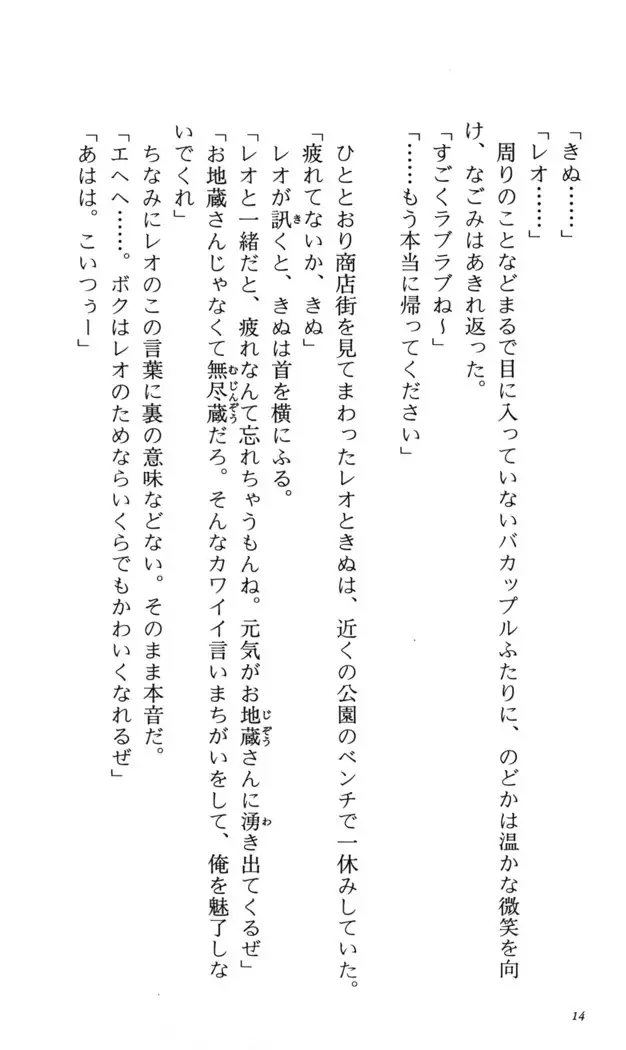 「きぬ……」
「レオ……」
　周りのことなどまるで目に入っていないバカップルふたりに、のどかは温かな微笑を向
け、なごみはあきれ返った。
「すごくラブラブね～」
「……もう本当に帰ってください」
　ひととおり商店街を見てまわったレオときぬは、近くの公園のベンチで一休みしていた。
「疲れてないか、きぬ」
　レオが訊くと、きぬは首を横にふる。
「レオと一緒だと、疲れなんて忘れちゃうもんね。元気がお地蔵さんに湧き出てくるぜ」
「お地蔵さんじゃなくて無尽蔵だろ。そんなカワイイ言いまちがいをして、俺を魅了しな
いでくれ」
　ちなみにレオのこの言葉に裏の意味などない。そのまま本音だ。
「エヘヘ……。ボクはレオのためならいくらでもかわいくなれるぜ」
「あはは。こいつぅー」
14